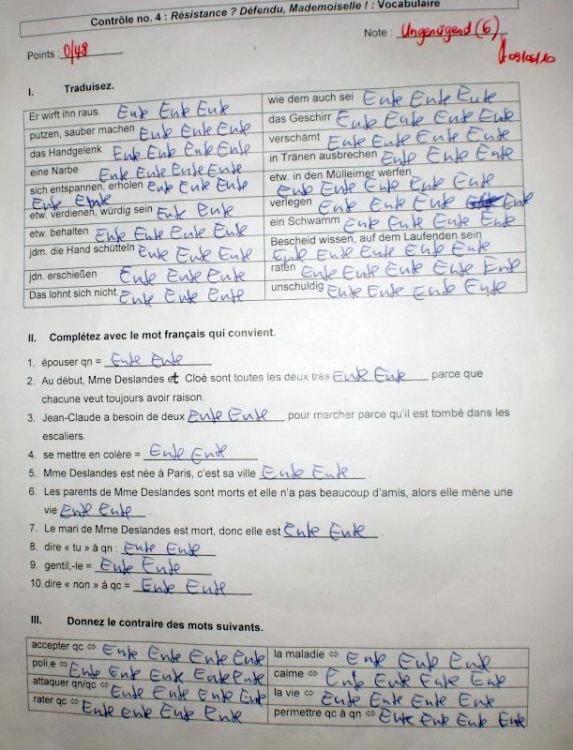 Contrôle no. 4 : Résistance ? Défendu, Mademoiselle ! : Vocabulaire
Points : 0/48
Note : Ungenügend (6)
09/06/10
I. Traduisez.
Er wirft ihn raus. Ente Ente Ente
wie dem auch sei Ente Ente Ente
putzen, sauber machen Ente Ente Ente
das Geschirr Ente Ente Ente Ente
das Handgelenk Ente Ente Ente Ente
verschämt Ente Ente Ente Ente
eine Narbe Ente Ente Ente Ente
in Tränen ausbrechen Ente Ente Ente
sich entspannen, erholen Ente Ente Ente
Ente Ente
etw. in den Mülleimer werfen
Ente Ente Ente Ente Ente
etw. verdienen, würdig sein Ente Ente
verlegen Ente Ente Ente Ente
etw. behalten Ente Ente Ente Ente
ein Schwamm Ente Ente Ente Ente
jdm. die Hand schütteln Ente Ente Ente
Bescheid wissen, auf dem Laufenden sein
Ente Ente Ente Ente Ente
jdn. erschießen Ente Ente Ente
raten Ente Ente Ente Ente Ente
Das lohnt sich nicht. Ente Ente Ente
unschuldig Ente Ente Ente Ente
II. Complétez avec le mot français qui convient.
1. épouser qn = Ente Ente
2. Au début, Mme Deslandes et Cloé sont toutes les deux très Ente Ente parce que
chacune veut toujours avoir raison.
3. Jean-Claude a besoin de deux Ente Ente pour marcher parce qu'il est tombé dans les
escaliers.
4. se mettre en colère = Ente Ente
5. Mme Deslandes est née à Paris, c'est sa ville Ente Ente.
6. Les parents de Mme Deslandes sont morts et elle n'a pas beaucoup d'amis, alors elle mène une
vie Ente Ente.
7. Le mari de Mme Deslandes est mort, donc elle est Ente Ente.
8. dire « tu » à qn : Ente Ente
9. gentil,-le = Ente Ente
10. dire « non » à qc = Ente Ente
III. Donnez le contraire des mots suivants.
accepter qc ⇔ Ente Ente Ente Ente
la maladie ⇔ Ente Ente Ente
poli,e ⇔ Ente Ente Ente Ente Ente
calme ⇔ Ente Ente Ente Ente
attaquer qn/qc ⇔ Ente Ente Ente Ente
la vie ⇔ Ente Ente Ente Ente
rater qc ⇔ Ente Ente Ente Ente
permettre qc à qn ⇔ Ente Ente Ente Ente